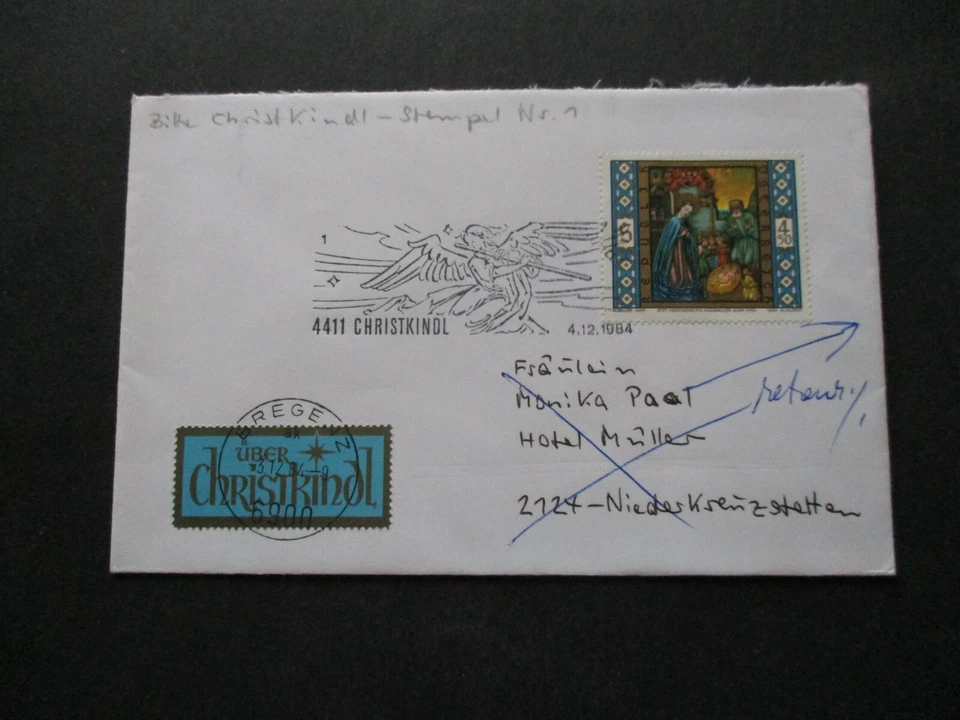 Bitte Christkindl - Stempel Nr. 1
1
4411 CHRISTKINDL
4.12.1984
S
4
50
REPUBLIK
ÖSTERREICH
Fräulein
Monika Paal
Hotel Müller
2124-Niederkreuzstetten
retour!
BREGENZ
ak
ÜBER
3.12.84-9
christkindl
6900